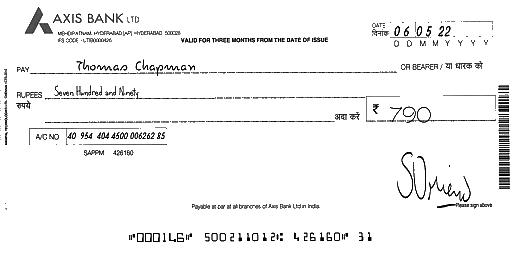 AXIS BANK LTD
MEHDIPATNAM, HYDERABAD [AP] HYDERABAD 500028
IFS CODE - UTIB0000426
VALID FOR THREE MONTHS FROM THE DATE OF ISSUE
DATE
दिनांक 06 05 22
D D M M Y Y Y Y
PAY Thomas Chapman OR BEARER / या धारक को
RUPEES Seven Hundred and Ninety
रुपये
अदा करें ₹ 790
A/C NO 40 954 404 4500 006262 85
SAPPM 426160
Payable at par at all branches of Axis Bank Ltd in India.
Please sign above
⑈000146⑈ 500211012⑆ 426160⑈ 31